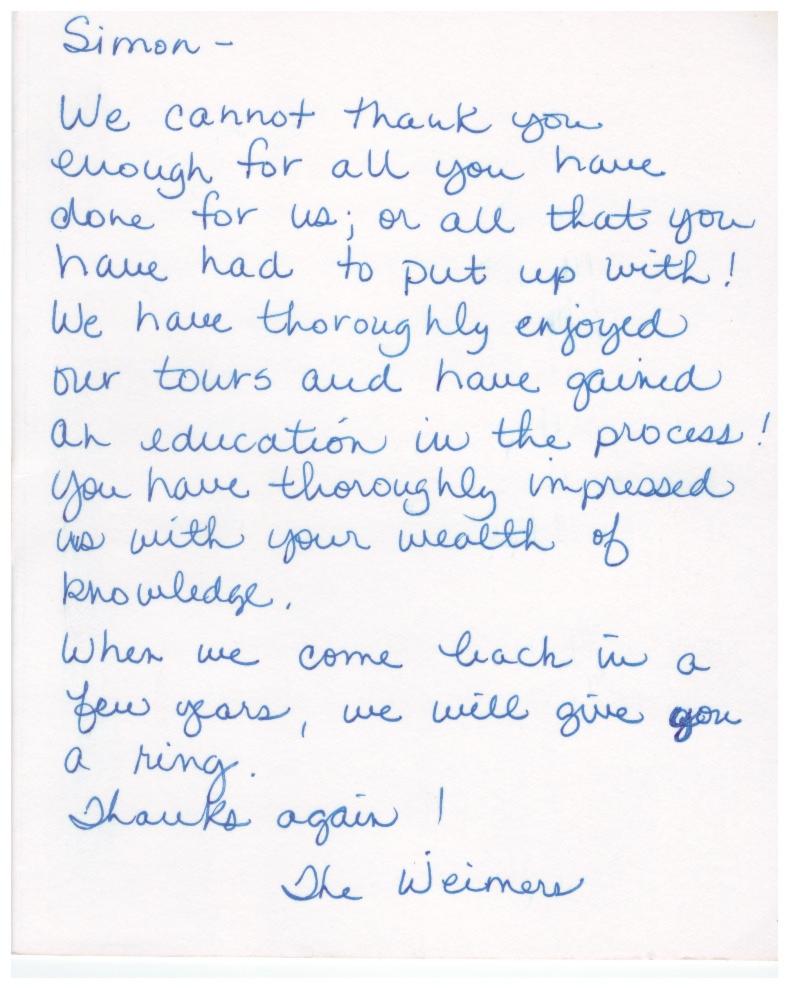 Simon -
We cannot thank you
enough for all you have
done for us; or all that you
have had to put up with!
We have thoroughly enjoyed
our tours and have gained
an education in the process!
You have thoroughly impressed
us with your wealth of
knowledge.
When we come back in a
few years, we will give you
a ring.
Thanks again!
The Weimers